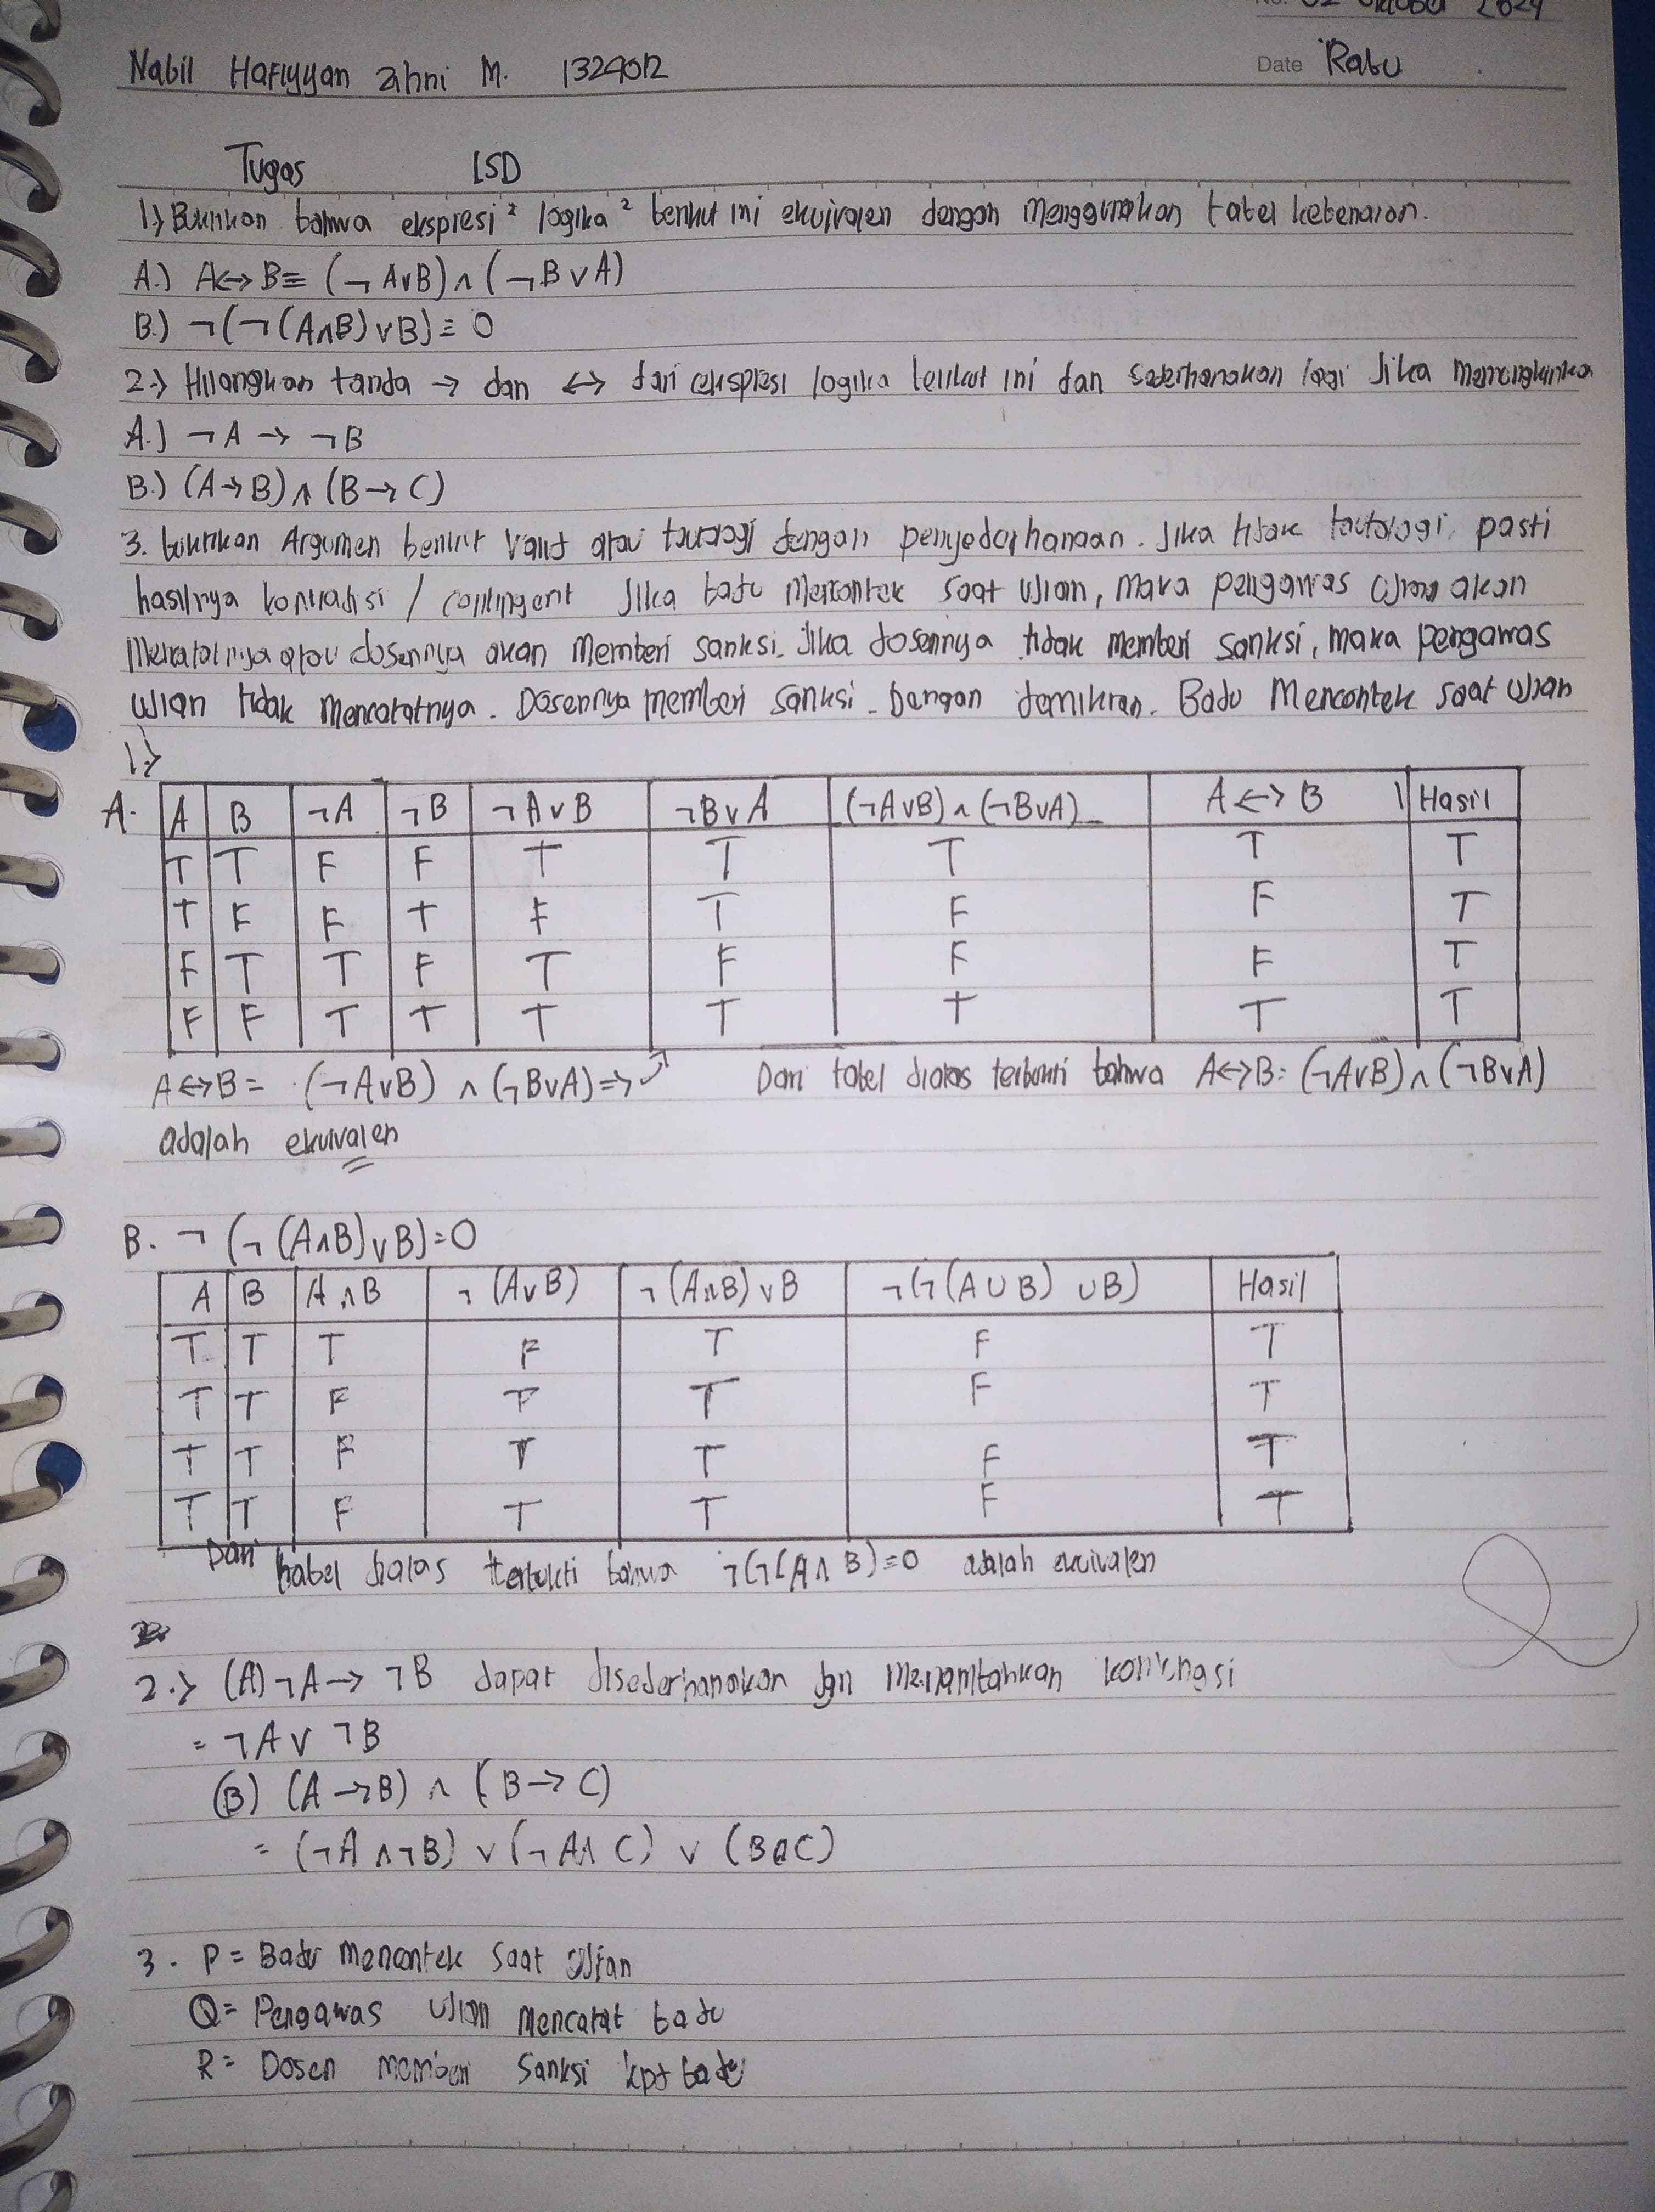 No. 02 Oktober 2024
Nabil Hafiyyan Zihni M. 1324012 Date Rabu
Tugas LSD
1.) Buktikan bahwa ekspresi² logika² berikut ini ekuivalen dengan menggunakan tabel kebenaran.
A.) A↔B≡ (¬A∨B)∧(¬B∨A)
B.) ¬(¬(A∧B)∨B)≡0
2.) Hilangkan tanda → dan ↔ dari ekspresi logika berikut ini dan sederhanakan lagi Jika memungkinkan
A.) ¬A → ¬B
B.) (A→B)∧(B→C)
3. buktikan Argumen berikut valid atau tautologi dengan penyederhanaan. Jika tidak tautologi, pasti
hasilnya kontradisi / contingent Jika badu Mencontek saat ujian, maka pengawas ujian akan
mencatatnya atau dosennya akan memberi sanksi. Jika dosennya tidak memberi sanksi, maka pengawas
ujian tidak mencatatnya. Dosennya memberi sanksi. Dengan demikian. Badu Mencontek saat ujian
1.)
A. A B ¬A ¬B ¬A∨B ¬B∨A (¬A∨B)∧(¬B∨A) A↔B Hasil
T T F F T T T T T
T F F T F T F F T
F T T F T F F F T
F F T T T T T T T
A↔B = (¬A∨B) ∧(¬B∨A)⇒ Dari tabel diatas terbukti bahwa A↔B= (¬A∨B)∧(¬B∨A)
adalah ekuivalen
B. ¬(¬(A∧B)∨B)=0
A B A∧B ¬(A∨B) ¬(A∧B)∨B ¬(¬(A∪B) ∪B) Hasil
T T T F T F T
T T F T T F T
T T F T T F T
T T F T T F T
Dari tabel diatas terbukti bahwa ¬(¬(A∧B)=0 adalah ekuivalen
2.) (A) ¬A → ¬B dapat disederhanakan dgn menambahkan
= ¬A∨ ¬B
(B) (A→B) ∧ (B→C)
= (¬A∧¬B) ∨(¬A∧C) ∨ (B∧C)
3. P= Badu mencontek saat ujian
Q= Pengawas ujian mencatat badu
R= Dosen memberi sanksi kpd badu